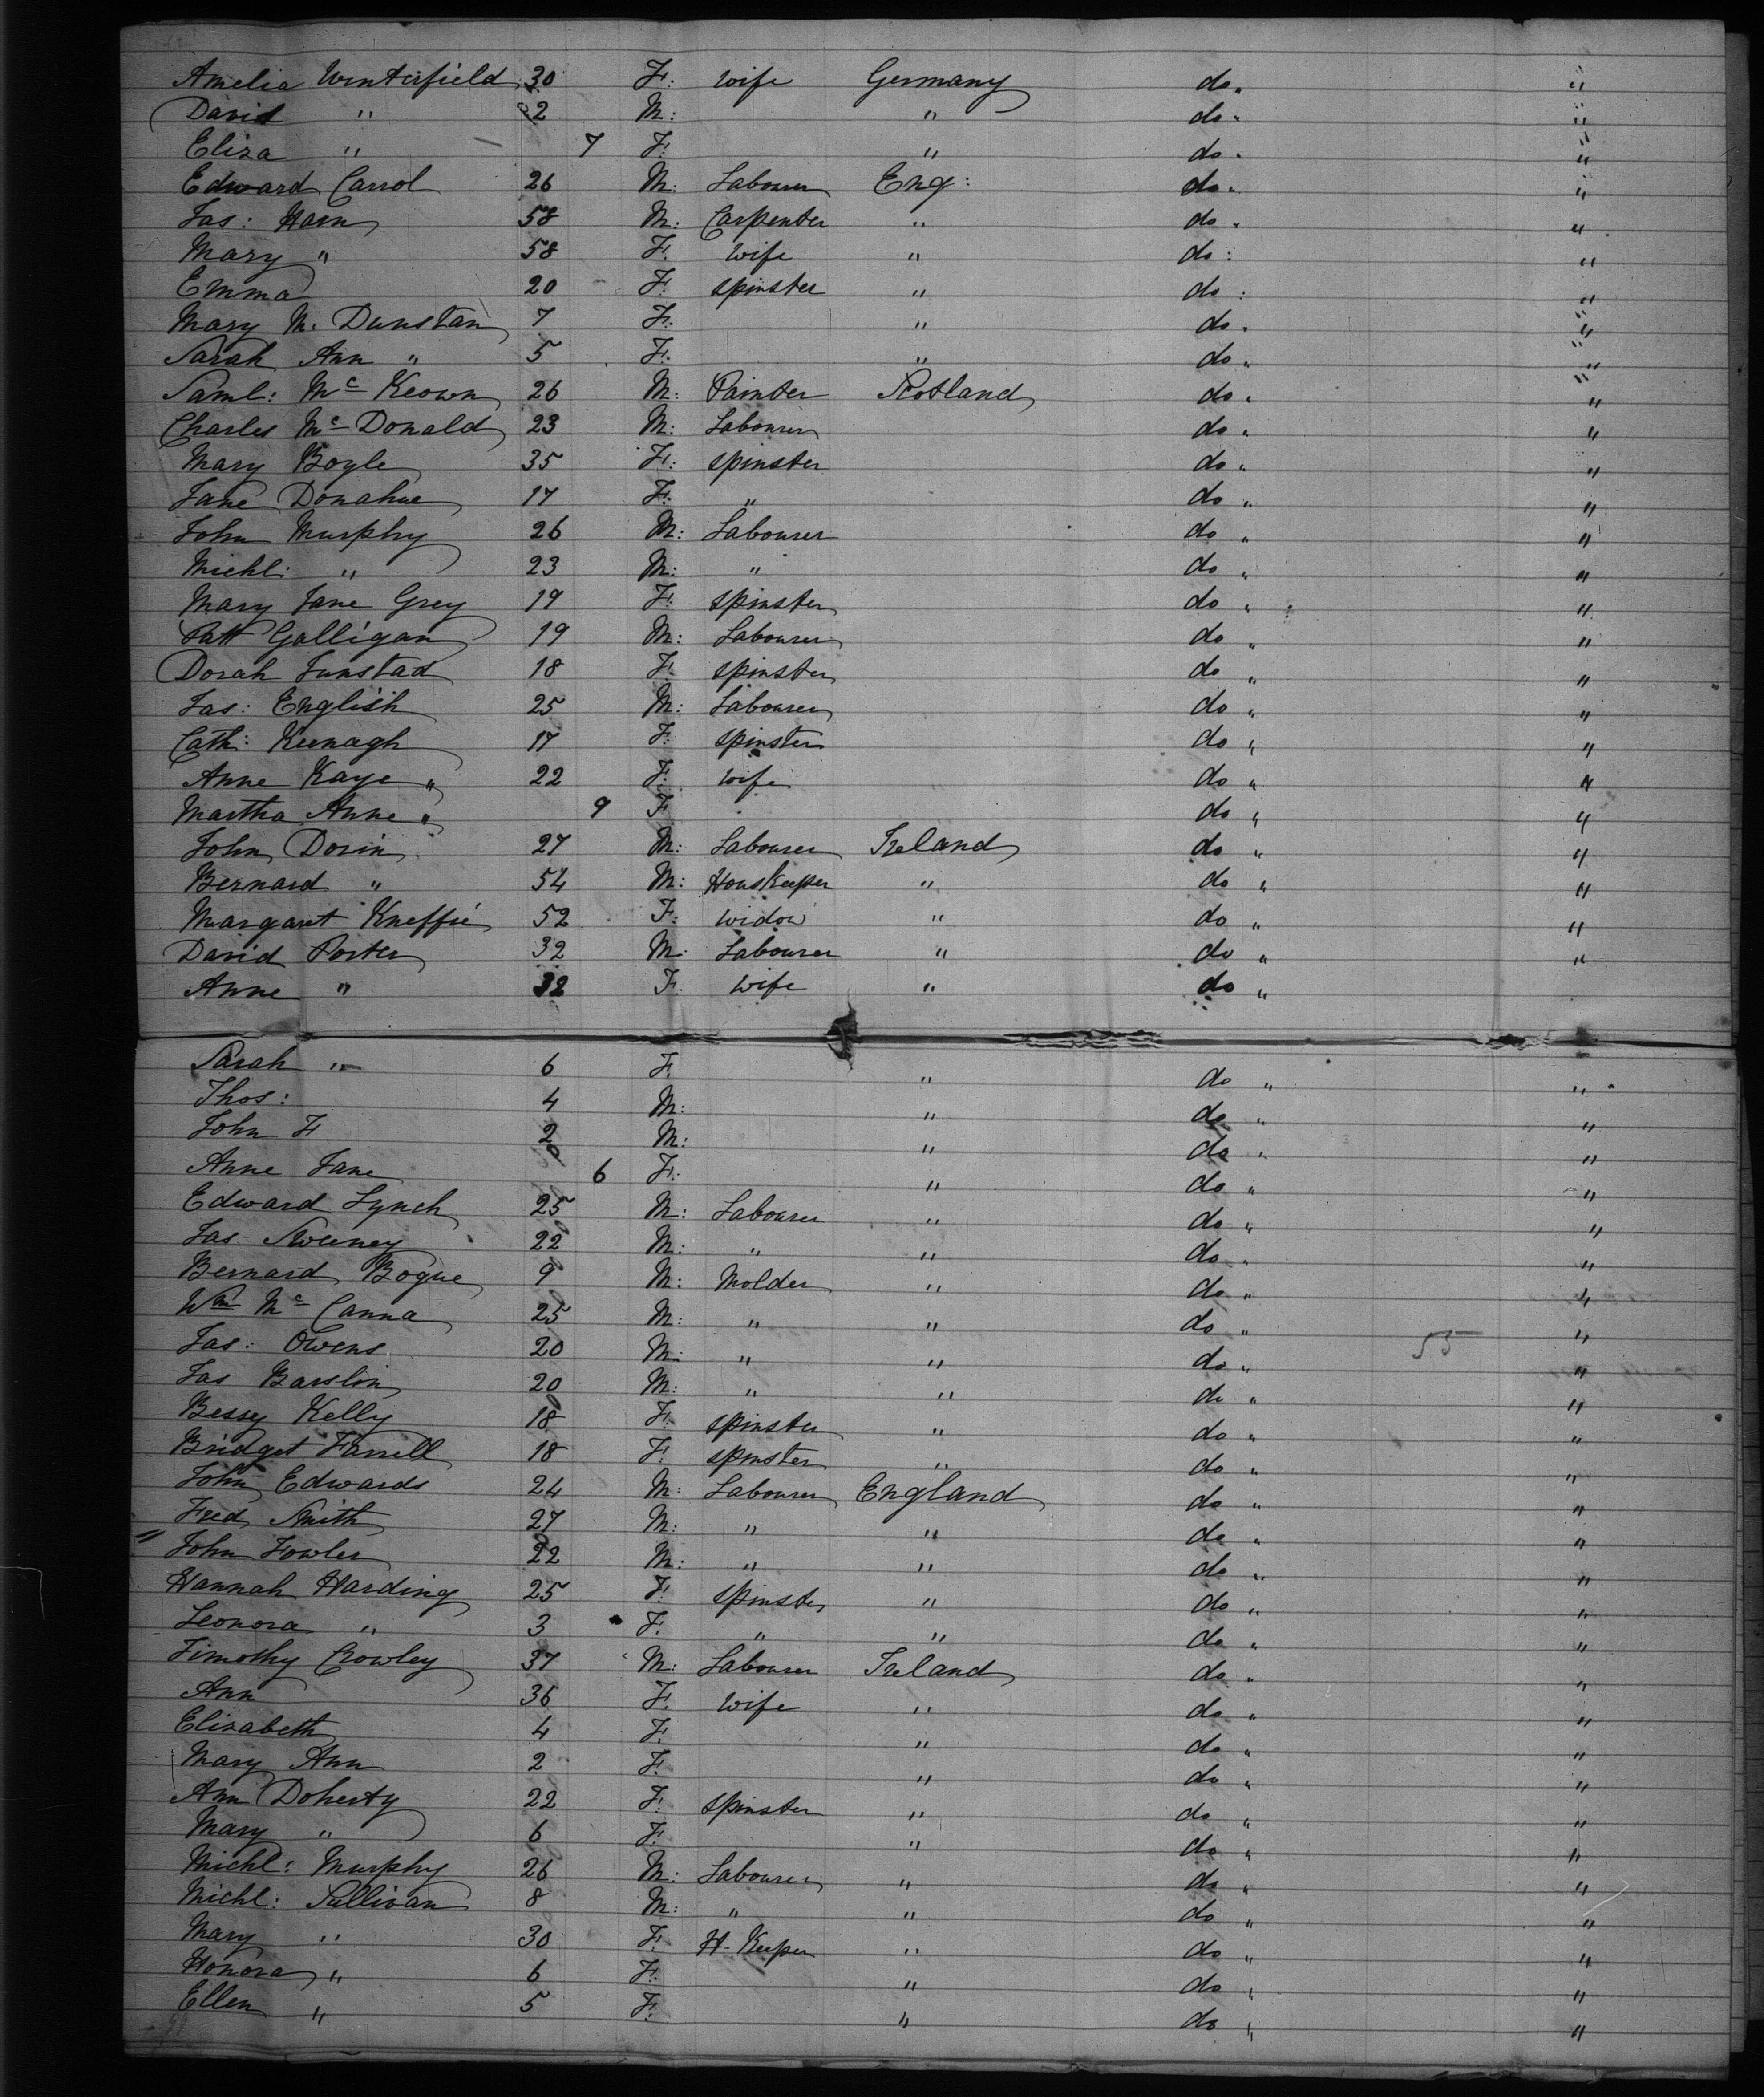 Amelia Winterfield 30 F: wife Germany do " "
David " 2 M: " do " "
Eliza " 7 F: " do " "
Edward Carrol 26 M: Labourer Eng: do " "
Jas: Harn 58 M: Carpenter " do " "
Mary " 58 F: wife " do : "
Emma 20 F: spinster " do : "
Mary M. Dunstan 7 F: " do " "
Sarah Ann " 5 F: " do " "
Saml: Mc Keown 26 M: Painter Scotland do " "
Charles Mc Donald 23 M: Labourer do " "
Mary Boyle 35 F: spinster do " "
Jane Donahue 17 F: " do " "
John Murphy 26 M: Labourer do " "
Michl: " 23 M: " do " "
Mary Jane Grey 19 F: spinster do " "
Patt Galligan 19 M: Labourer do " "
Dorah Funstad 18 F: spinster do " "
Jas: English 25 M: Labourer do " "
Cath: Keenagh 17 F: spinster do " "
Anne Kaye " 22 F: wife do " "
Martha Anne " 9 F do " "
John Dorin 27 M: Labourer Ireland do " "
Bernard " 54 M: Houskeeper " do " "
Margaret Kneffie 52 F: widow " do " "
David Porter 32 M: Labourer " do " "
Anne " 32 F: wife " do "
Sarah " 6 F: " do " "
Thos: 4 M: " do " "
John F 2 M: " do " "
Anne Jane 6 F: " do " "
Edward Lynch 25 M: Labourer " do " "
Jas Sweeney 22 M: " " do " "
Bernard Bogue 9 M: Molder " do " "
Wm Mc Canna 25 M: " " do " "
Jas: Owens 20 M: " " do " 55 "
Jas Barslin 20 M: " " do " "
Bessy Kelly 18 F: spinster " do " "
Bridget Farrell 18 F: spinster " do " "
John Edwards 24 M: Labourer England do " "
Fred Smith 27 M: " " do " "
" John Fowler 22 M: " " do " "
Hannah Harding 25 F: spinster " do " "
Leonora " 3 F: " " do " "
Timothy Crowley 37 M: Labourer Ireland do " "
Ann 36 F: wife " do " "
Elizabeth 4 F: " do " "
Mary Ann 2 F: " do " "
Ann Doherty 22 F: spinster " do " "
Mary " 6 F: " do " "
Michl: Murphy 26 M: Labourer " do " "
Michl: Sullivan 8 M: " " do " "
Mary " 30 F: H-Keeper " do " "
Honora " 6 F: " do " "
Ellen " 5 F: " do " "